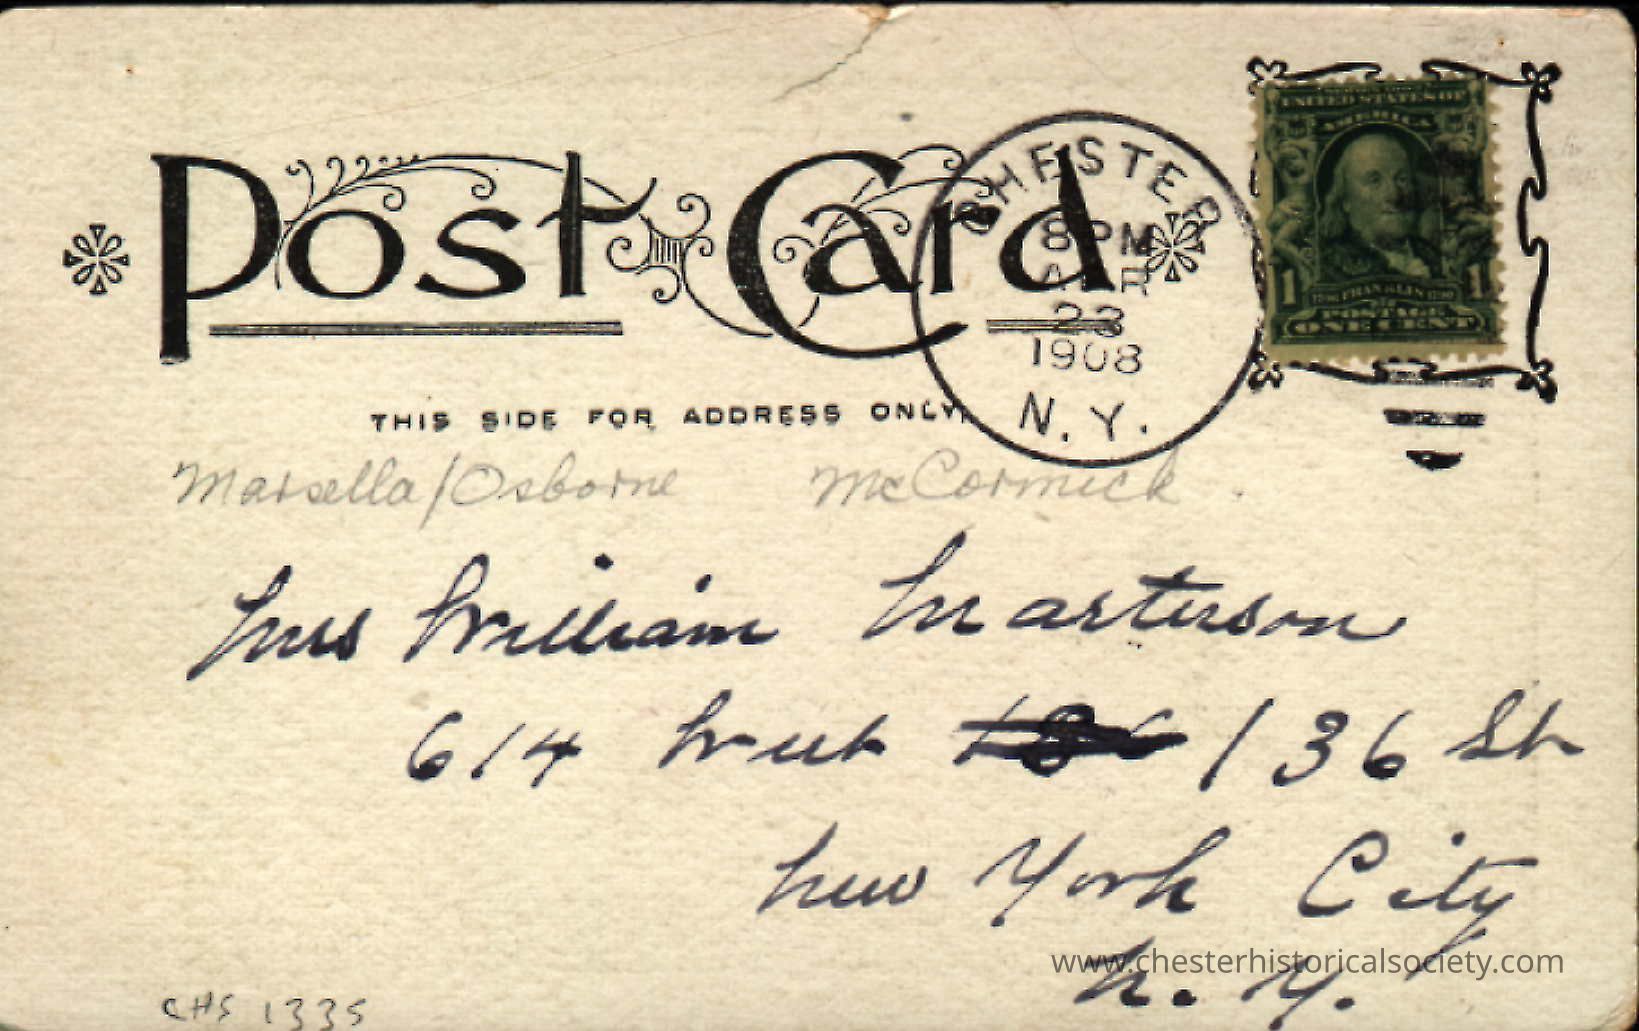 Post Card
CHESTER
8 PM
23
1908
N.Y.
UNITED STATES OF
AMERICA
1 1
FRANKLIN
POSTAGE
ONE CENT
THIS SIDE FOR ADDRESS ONLY.
Marsella/Osborne McCormick
Mrs William Masterson
614 West 136 St
New York City
N. Y.
www.chesterhistoricalsociety.com
CHS 1335